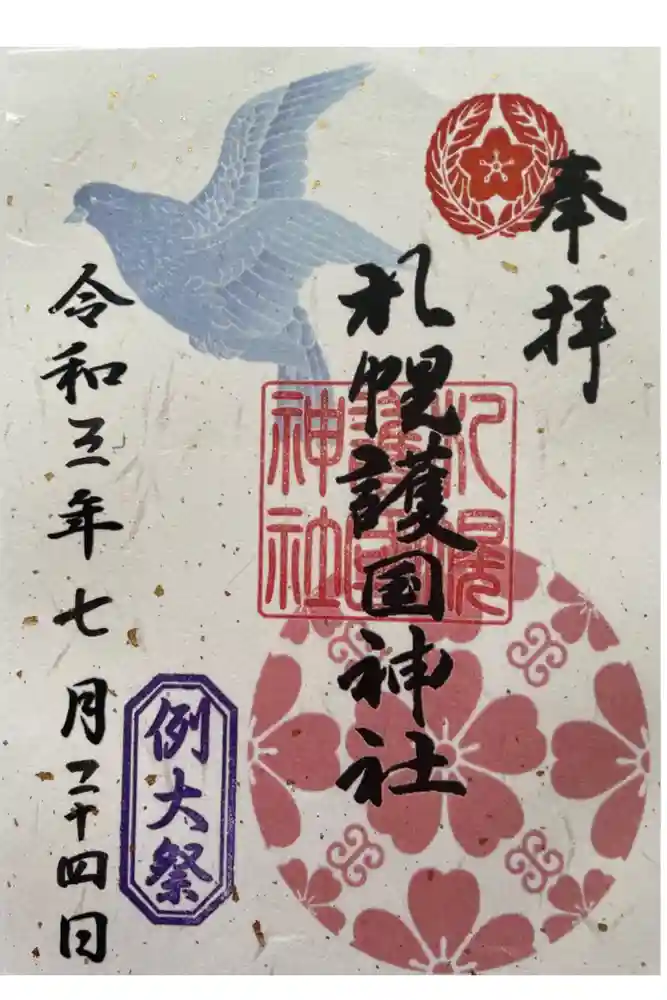 奉拝
札幌護国神社
札幌護国神社
令和三年七月二十四日
例大祭